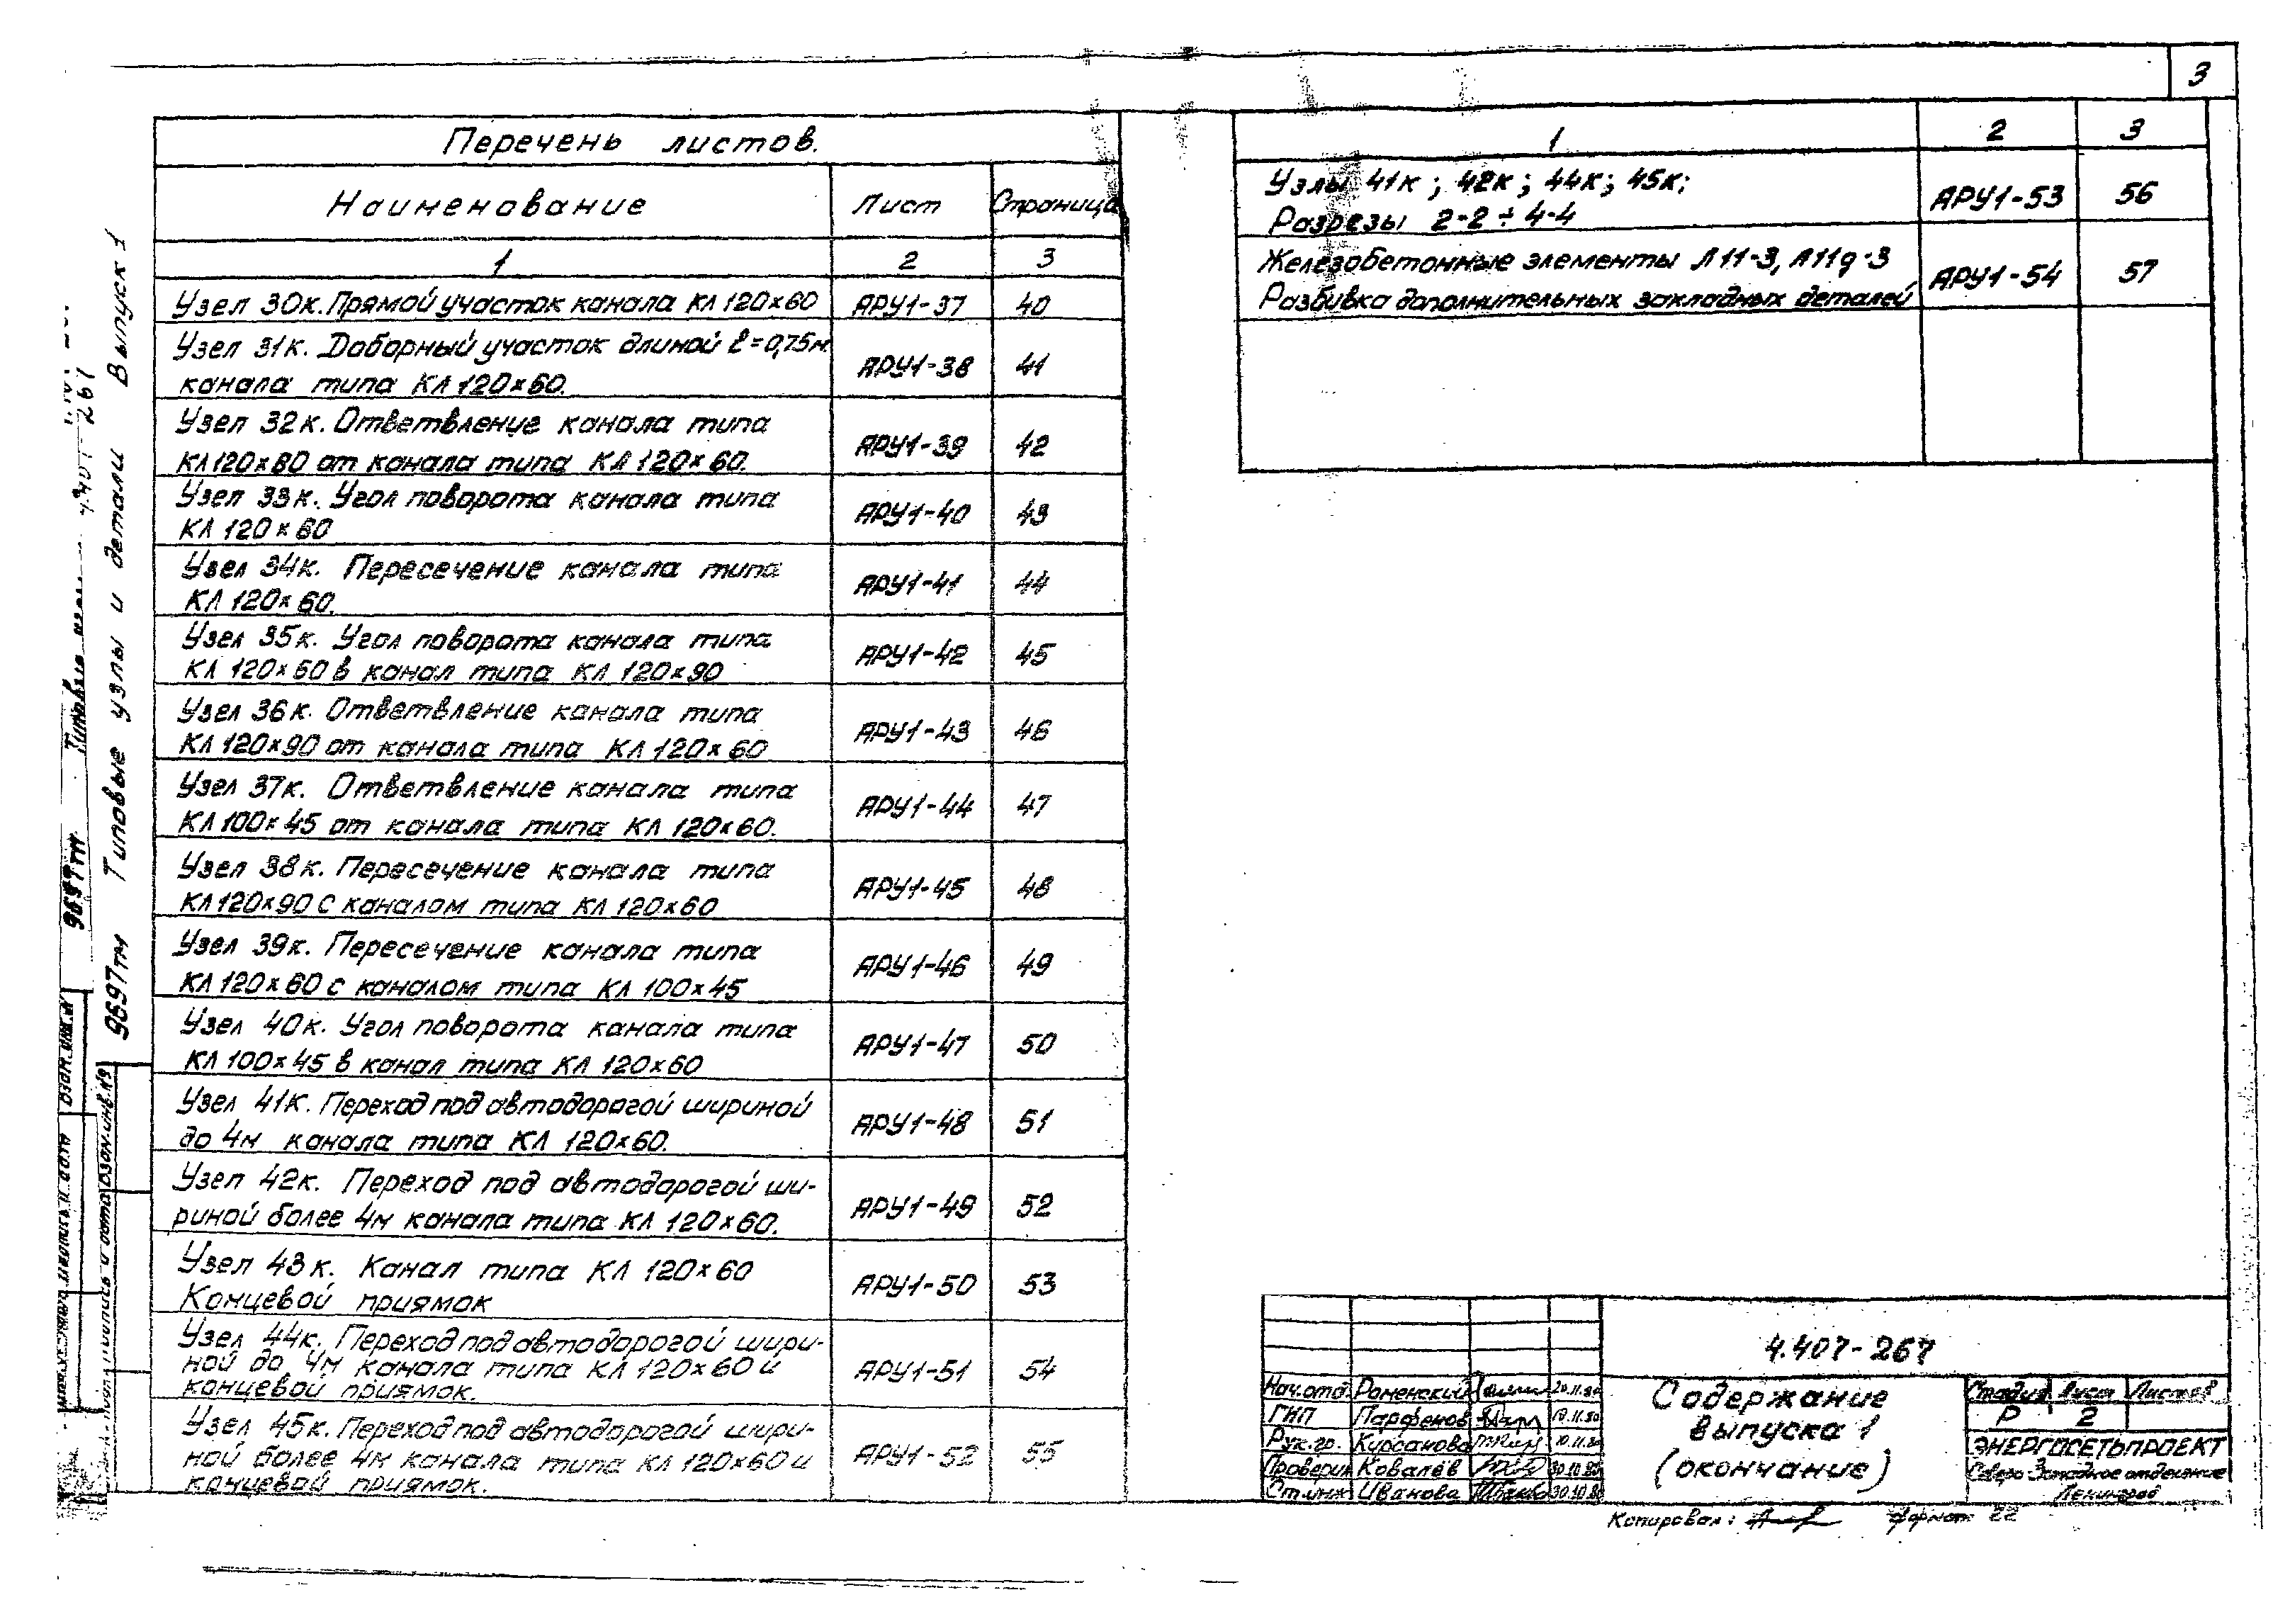 3
Перечень листов.
Наименование Лист Страница
1 2 3
Узел 30к. Прямой участок канала КЛ 120×60 АРУ1-37 40
Узел 31к. Доборный участок длиной ℓ=0,75м
канала типа КЛ 120×60. АРУ1-38 41
Узел 32к. Ответвление канала типа
КЛ 120×60 от канала типа КЛ 120×60. АРУ1-39 42
Узел 33к. Угол поворота канала типа
КЛ 120×60 АРУ1-40 43
Узел 34к. Пересечение канала типа
КЛ 120×60. АРУ1-41 44
Узел 35к. Угол поворота канала типа
КЛ 120×60 в канал типа КЛ 120×90 АРУ1-42 45
Узел 36к. Ответвление канала типа
КЛ 120×90 от канала типа КЛ 120×60 АРУ1-43 46
Узел 37к. Ответвление канала типа
КЛ 100×45 от канала типа КЛ 120×60. АРУ1-44 47
Узел 38к. Пересечение канала типа
КЛ 120×90 с каналом типа КЛ 120×60 АРУ1-45 48
Узел 39к. Пересечение канала типа
КЛ 120×60 с каналом типа КЛ 100×45 АРУ1-46 49
Узел 40к. Угол поворота канала типа
КЛ 100×45 в канал типа КЛ 120×60 АРУ1-47 50
Узел 41к. Переход под автодорогой шириной
до 4м канала типа КЛ 120×60. АРУ1-48 51
Узел 42к. Переход под автодорогой ши-
риной более 4м канала типа КЛ 120×60. АРУ1-49 52
Узел 43к. Канал типа КЛ 120×60
Концевой приямок АРУ1-50 53
Узел 44к. Переход под автодорогой шири-
ной до 4м канала типа КЛ 120×60 и
концевой приямок. АРУ1-51 54
Узел 45к. Переход под автодорогой шири-
ной более 4м канала типа КЛ 120×60 и
концевой приямок. АРУ1-52 55
1 2 3
Узлы 41к; 42к; 44к; 45к;
Разрезы 2-2 ÷ 4-4 АРУ1-53 56
Железобетонные элементы Л11-3, Л11д-3
Разбивка дополнительных закладных деталей АРУ1-54 57
9697тм Типовые узлы и детали Выпуск 1
9697тм
Взам.инв.№
4.407-267
Нач.отд. Роменский 20.11.80
ГИП Парфенов 10.11.80
Рук.гр. Курсанова 10.11.80
Проверил Ковалёв 30.10.80
Ст.инж. Иванова 30.10.80
Содержание
выпуска 1
(окончание)
Стадия Лист Листов
Р 2
ЭНЕРГОСЕТЬПРОЕКТ
Северо-Западное отделение
Ленинград
Копировал: Формат 22